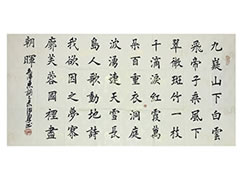 九嶷山下白雲
飛帝子乘風下
翠微斑竹一枝
千滴淚紅霞萬
朵百重衣洞庭
波湧連天雪長
島人歌動地詩
我欲因之夢寥
廓芙蓉國裡盡
朝暉